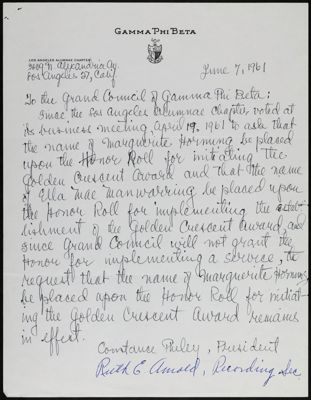 GAMMA PHI BETA
LOS ANGELES ALUMNAE CHAPTER
3609 N. Alexandria Av.
Los Angeles 27, Calif.
June 7, 1961
To the Grand Council of Gamma Phi Beta:
Since, the Los Angeles Alumnae Chapter voted at
its business meeting April 19, 1961 to ask that
the name of Marguerite Hornung be placed
upon the Honor Roll for initiating the
Golden Crescent Award and that the name
of Ella Mae Manwarring be placed upon
the Honor Roll for implementing the estab-
lishment of the Golden Crescent Award, and
since Grand Council will not grant the
Honor for implementing a service, the
request that the name of Marguerite Hornung
be placed upon the Honor Roll for initiat-
ing the Golden Crescent Award remains
in effect.
Constance , President
Ruth E. Arnold, Recording Sec.